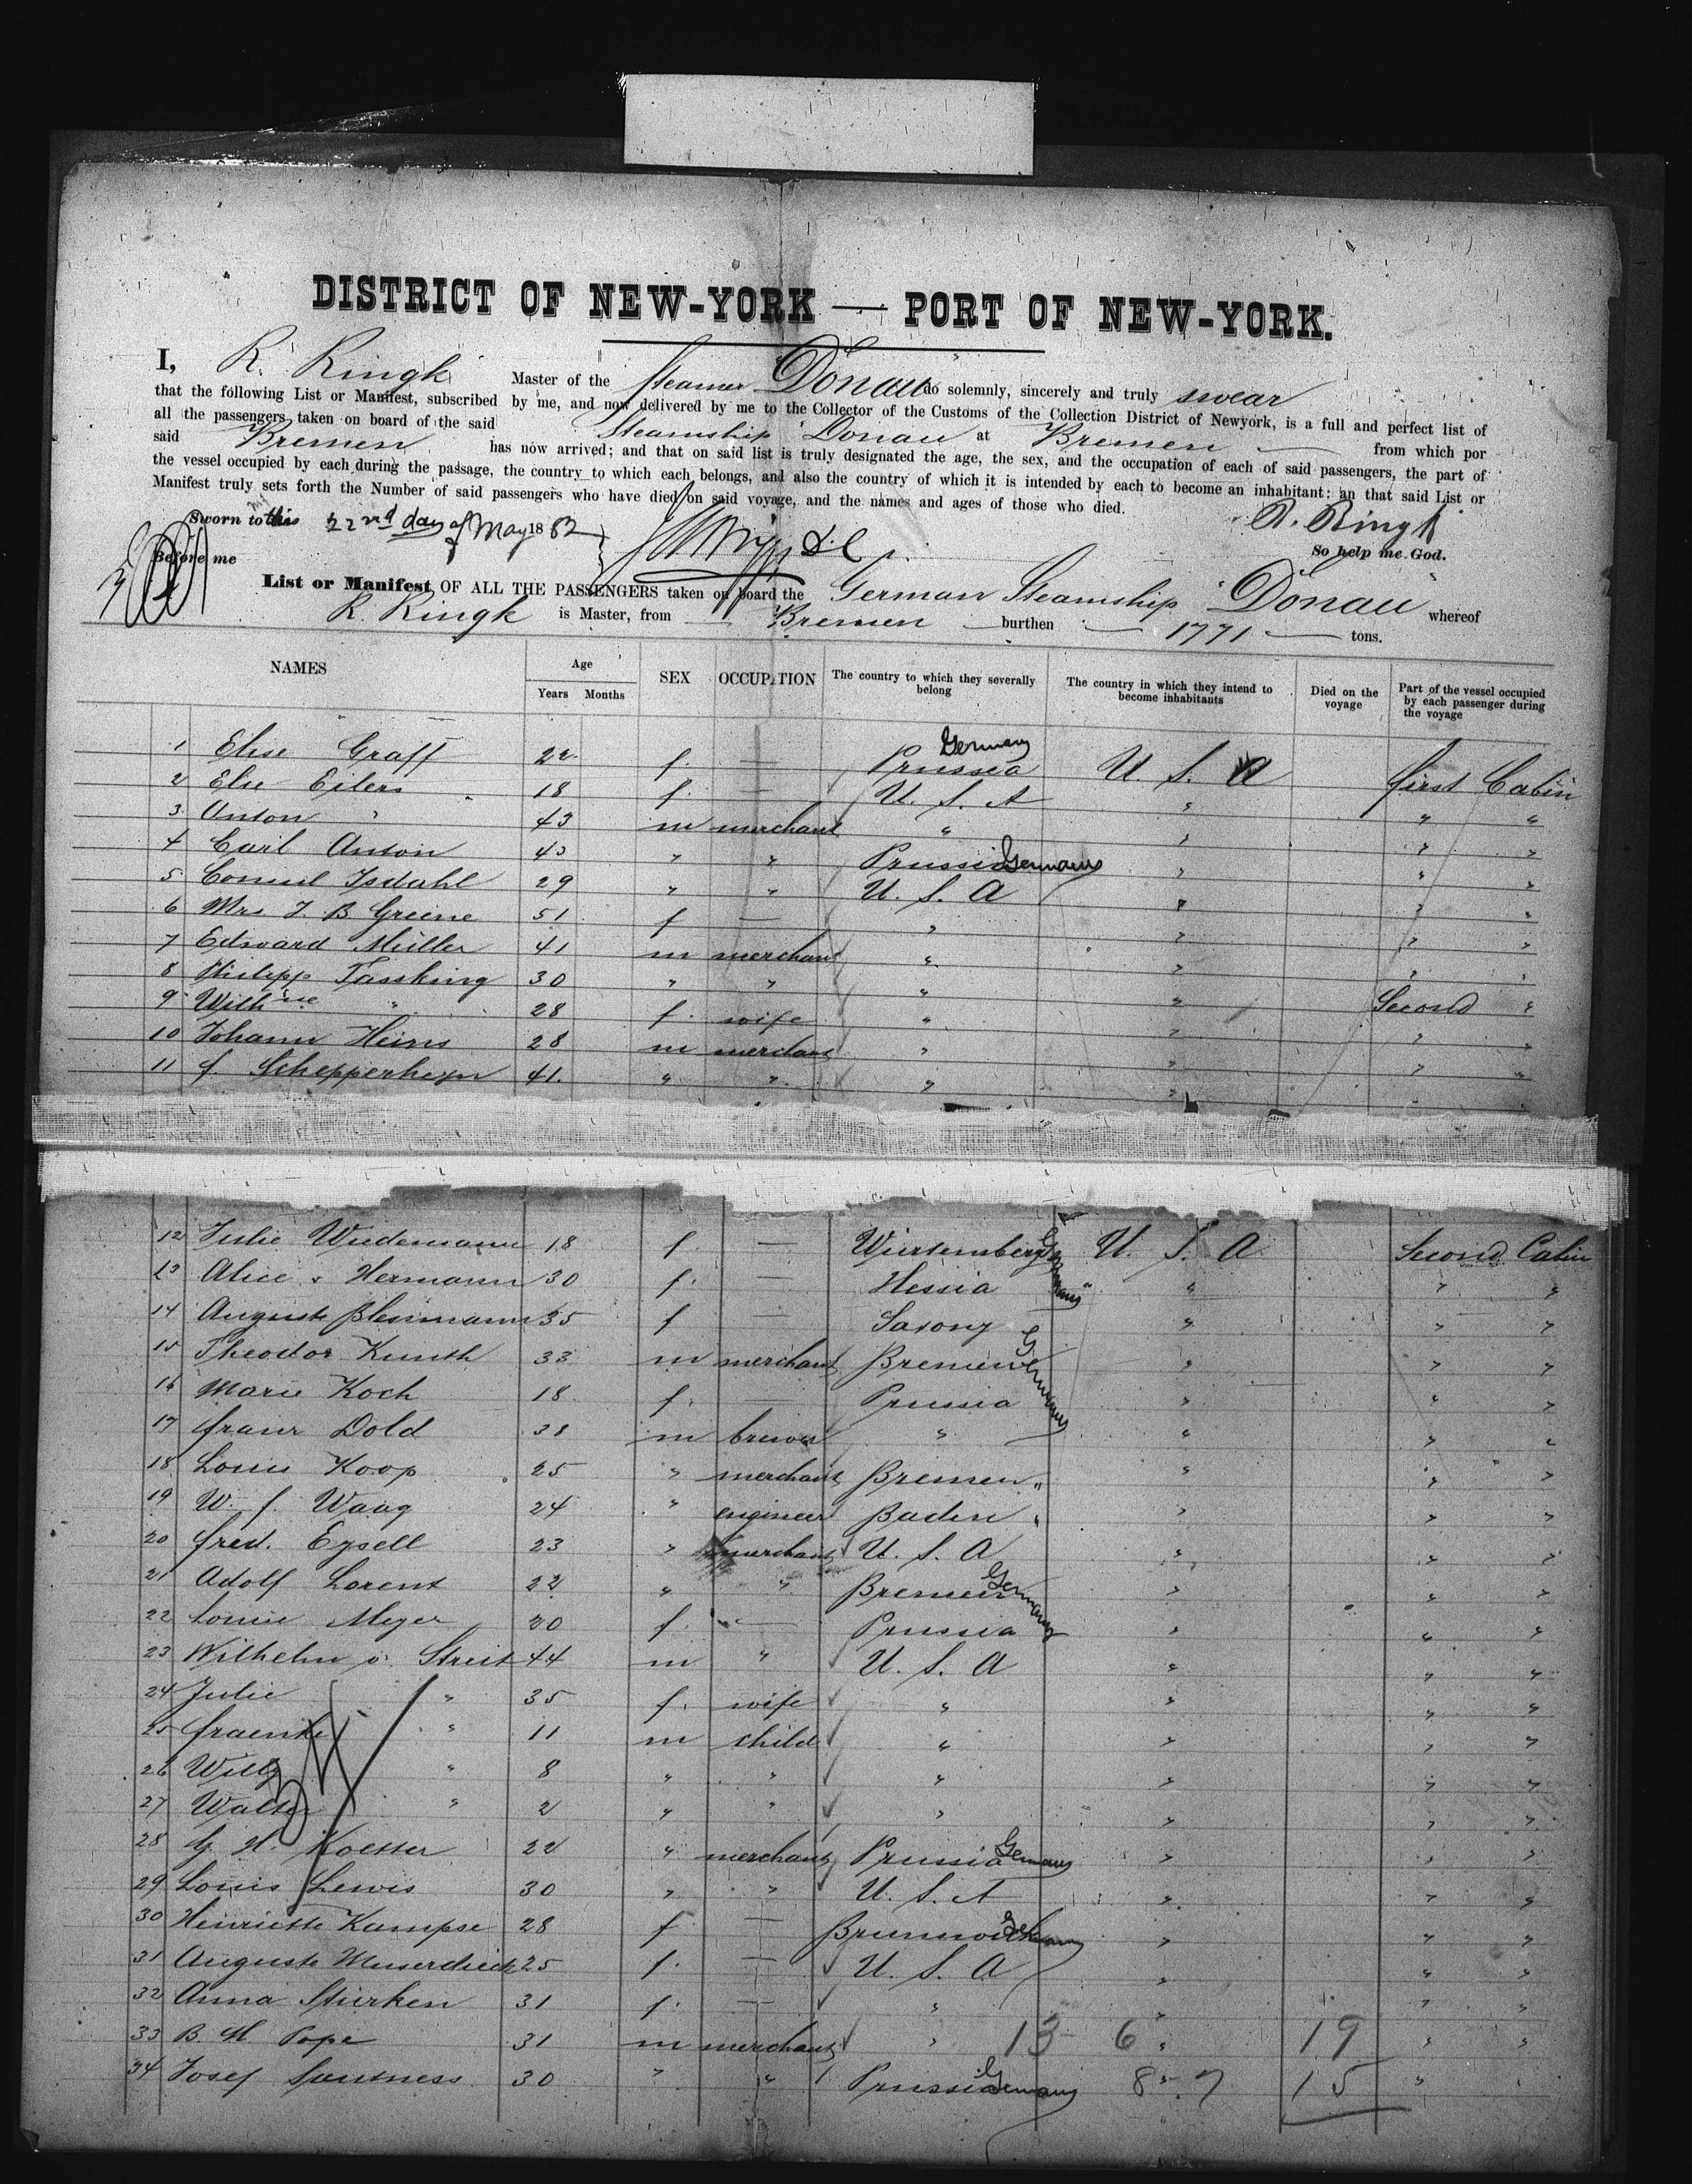 DISTRICT OF NEW-YORK — PORT OF NEW-YORK.
I, R. Ringk Master of the Steamer Donau do solemnly, sincerely and truly swear
that the following List or Manifest, subscribed by me, and now delivered by me to the Collector of the Customs of the Collection District of Newyork, is a full and perfect list of
all the passengers taken on board of the said Steamship Donau at Bremen from which por
said Bremen has now arrived; and that on said list is truly designated the age, the sex, and the occupation of each of said passengers, the part of
the vessel occupied by each during the passage, the country to which each belongs, and also the country of which it is intended by each to become an inhabitant: an that said List or
Manifest truly sets forth the Number of said passengers who have died on said voyage, and the names and ages of those who died.
Sworn to this 22nd day of May 1882 R. Ringk
Before me So help me God.
List or Manifest OF ALL THE PASSENGERS taken on board the German Steamship Donau whereof
R. Ringk is Master, from Bremen burthen 1771 tons.
NAMES Age Years Months SEX OCCUPATION The country to which they severally belong The country in which they intend to become inhabitants Died on the voyage Part of the vessel occupied by each passenger during the voyage
1 Elise Graff 22 f. — Prussia Germany U. S. A first Cabin
2 Elie Eilers 18 f. — U. S. A " " "
3 Anton " 43 m merchant " " " "
4 Carl Anton 43 " " Prussia Germany " " "
5 Consul Isdahl 29 " " U. S. A " " "
6 Mrs J. B. Greene 51 f — " " " "
7 Edward Müller 41 m merchant " " " "
8 Philipp Tassking 30 " " " " Second "
9 Wilhme " 28 f. wife " " " "
10 Johann Heins 28 m merchant " " " "
11 f. Schepperheyn 41. " " " " " "
12 Julie Wiedemann 18 f. — Würtemberg Germany U. S. A Second Cabin
13 Alice v Hermann 30 f. — Hessia " " " "
14 Auguste Blessmann 35 f — Saxony " " "
15 Theodor Kunth 33 m merchant Bremen Germany " " "
16 Marie Koch 18 f. — Prussia " " "
17 franz Dold 38 m brewer " " " "
18 Louis Koop 25 " merchant Bremen " " " "
19 W. f. Waag 24 " engineer Baden " " " "
20 fred. Eysell 23 " merchant U. S. A " " "
21 Adolf Lorent 22 " " Bremen Germany " " "
22 Louise Meyer 20 f. — Prussia " " "
23 Wilhelm v. Streit 44 m " U. S. A " " "
24 Julie " 35 f. wife " " " "
25 fraenke " 11 m child " " " "
26 Willy " 8 " " " " " "
27 Walter " 2 " " " " " "
28 G. H. Koester 22 " merchant Prussia Germany " " "
29 Louis Lewis 30 " " U. S. A " " "
30 Henriette Kampse 28 f — Brunswick Germany " " "
31 Auguste Muserdieck 25 f. — U. S. A " " "
32 Anna Stierken 31 f. — " " " "
33 B. H. Pope 31 m merchant " 13 6 " 19 " "
34 Josef 30 " " Prussia Germany 8 7 15 " "